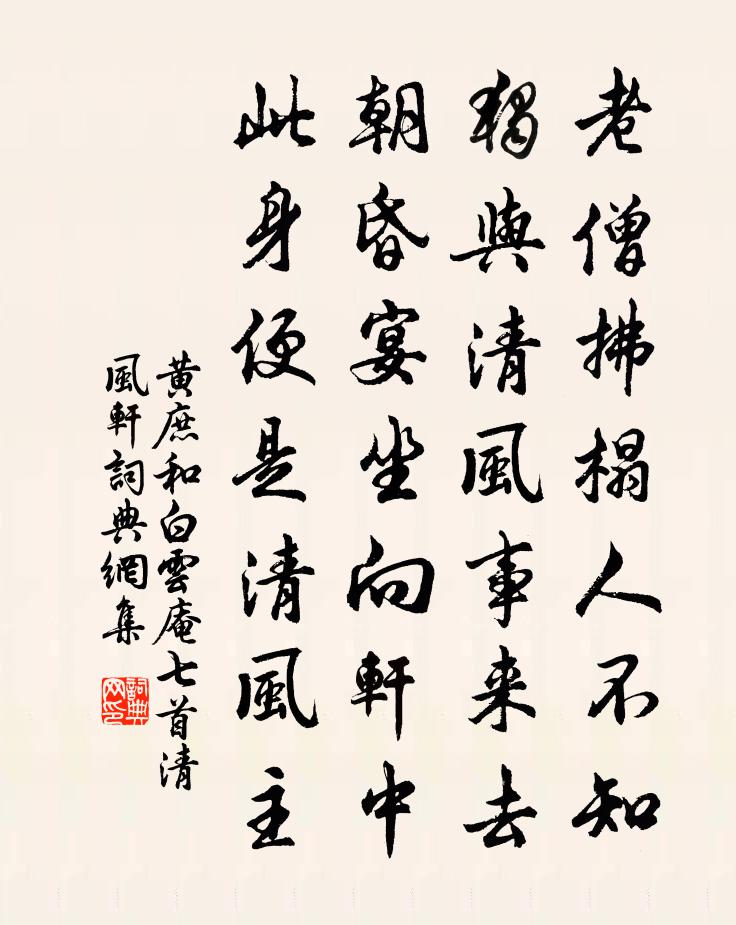 老僧拂榻人不知
獨與清風事来去
朝昏宴坐向軒中
此身便是清風主
黃庶和白雲庵七首清
風軒詞典網集
詞典
网印